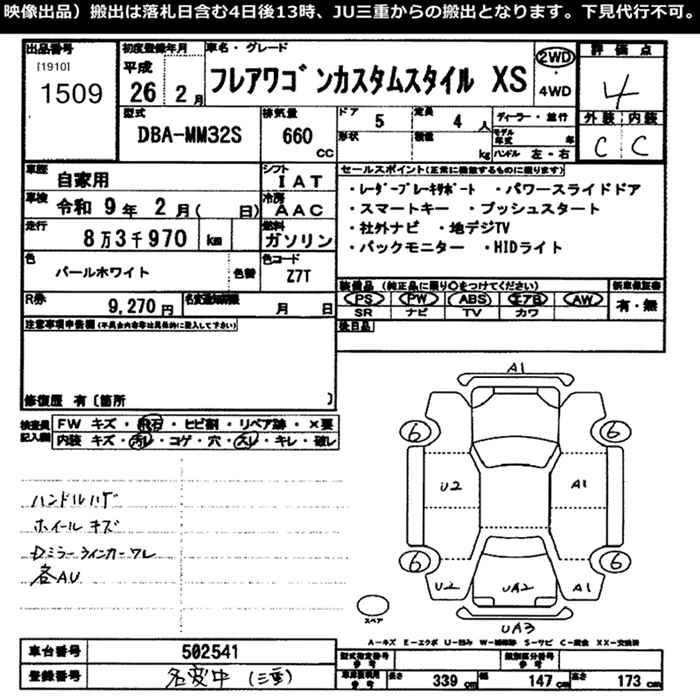 映像出品）搬出は落札日含む4日後13時、JU三重からの搬出となります。下見代行不可。
出品番号
[1910]
1509
初度登録年月
平成
26 年 2 月
車名・グレード
フレアワゴンカスタムスタイル XS
2WD
・
4WD
評価点
4
外装 内装
C C
型式
DBA-MM32S
排気量
660 cc
ドア 5
形状
定員 4 人
積載 kg
ディーラー・並行
モデル年式 年
ハンドル 左・右
車歴 自家用
シフト IAT
車検 令和 9 年 2 月( 日)
冷房 AAC
走行 8万3千970 km
燃料 ガソリン
色 パールホワイト
色替
色コード Z7T
R券 9,270円
名変通知期限 月 日
セールスポイント(正常に機能するものに限ります)
・レーダーブレーキサポート ・パワースライドドア
・スマートキー ・プッシュスタート
・社外ナビ ・地デジTV
・バックモニター ・HIDライト
装備品 (純正品に限り○をつけてください)
新車保証書
PS PW ABS エアB AW
SR ナビ TV カワ
有・無
後日品
注意事項申告欄
修復歴 有〔箇所 〕
検査員記入欄
FW キズ・飛石・ヒビ割・リペア跡・×要
内装 キズ・汚レ・コゲ・穴・スレ・キレ・破レ
ハンドルハゲ
ホイールキズ
Dミラーウインカーワレ
各AU
A1
6 6
U2 A1
6 6
U2 UA2 A1
UA3
スペア
A－キズ E－エクボ U－凹み W－補修跡 S－サビ C－腐食 XX－交換済
車台番号 502541
登録番号 名変中 (三重)
型式指定番号 参考
類別区分番号 参考
長さ 339 cm 幅 147 cm 高さ 173 cm